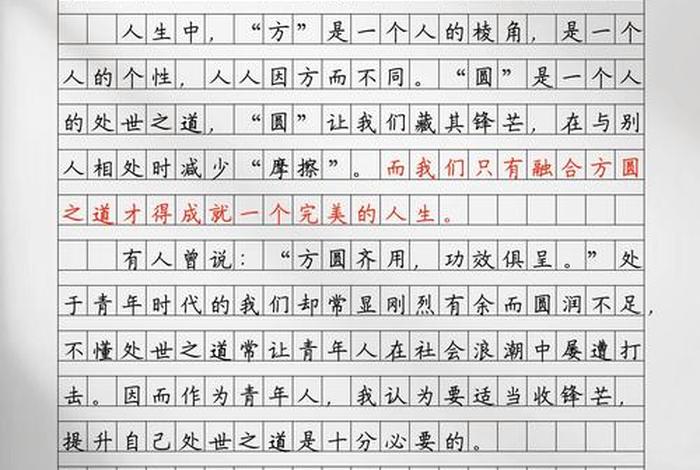 人生中，“方”是一个人的棱角，是一个
人的个性，人人因方而不同。“圆”是一个人
的处世之道，“圆”让我们藏其锋芒，在与别
人相处时减少“摩擦”。而我们只有融合方圆
之道才得成就一个完美的人生。
有人曾说：“方圆齐用，功效俱呈。”处
于青年时代的我们却常显刚烈有余而圆润不足，
不懂处世之道常让青年人在社会浪潮中屡遭打
击。因而作为青年人，我认为要适当收锋芒，
提升自己处世之道是十分必要的。